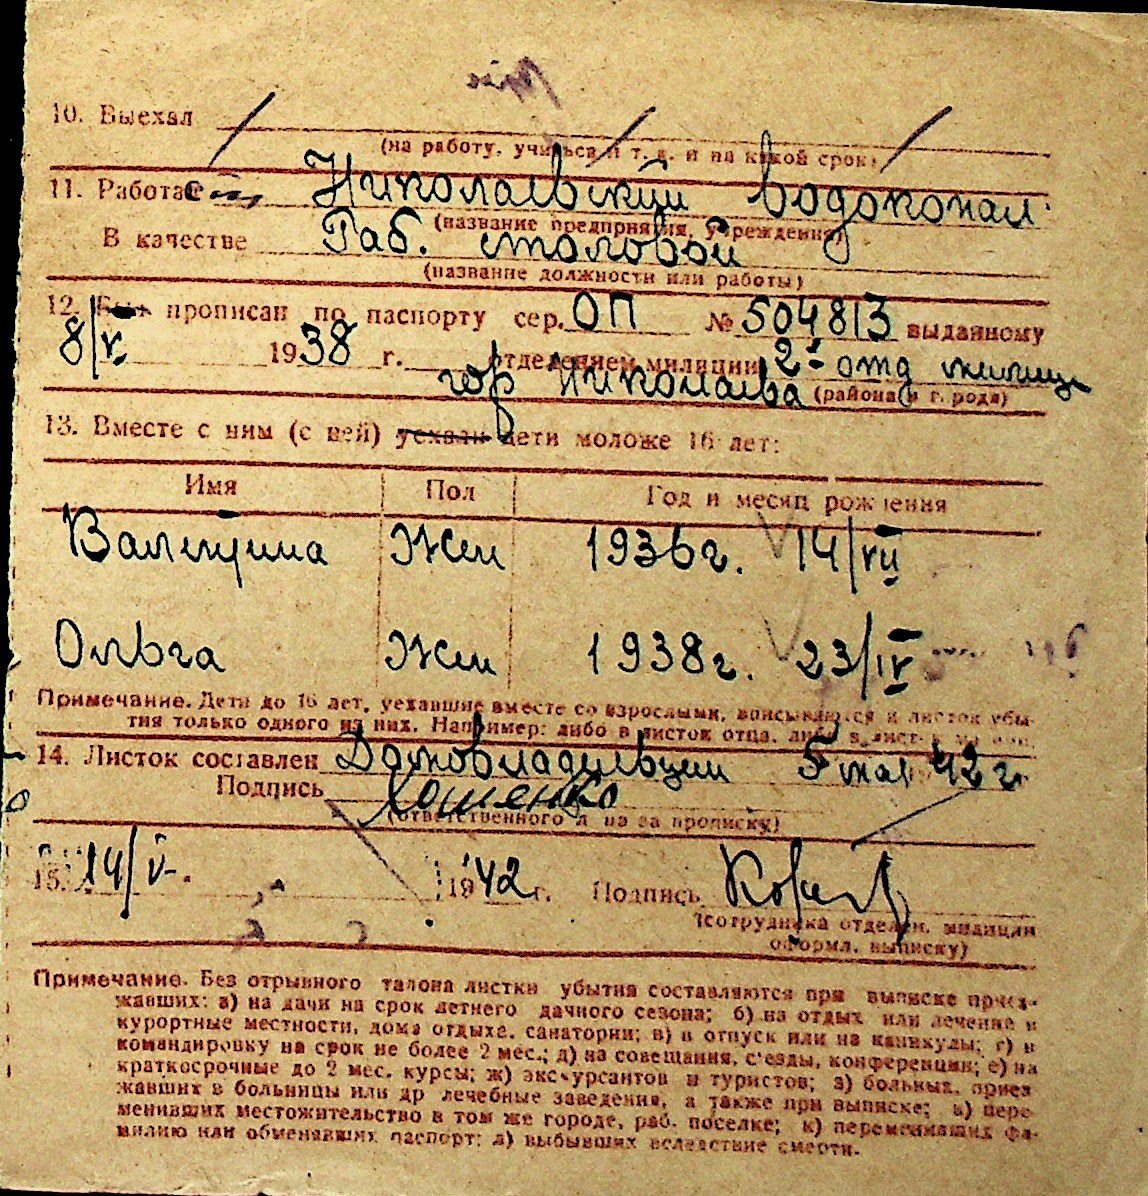 10. Выехал
(на работу, учиться и т. д. и на какой срок)
11. Работает Николаевский водоконал
(название предприятия, учреждения)
В качестве Раб. столовой
(название должности или работы)
12. Был прописан по паспорту сер. ОП № 504813 выданному
8/V 1938 г. отделением милиции 2е отд милиции
гор Николаева (района и города)
13. Вместе с ним (с ней) уехали дети моложе 16 лет:
Имя Пол Год и месяц рождения
Валентина Жен 1936г. 14/VII
Ольга Жен 1938г. 23/IV
Примечание. Дети до 16 лет, уехавшие вместе со взрослыми, вписываются в листок убы-
тия только одного из них. Например: либо в листок отца, либо в листок
14. Листок составлен Домовладельцем 5 мая 42 г.
Подпись Кошенко
(ответственного лица за прописку)
15. 14/V 1942 г. Подпись
(сотрудника отделен. милиции
оформл. выписку)
Примечание. Без отрывного талона листки убытия составляются при выписке приез-
жавших: а) на дачи на срок летнего дачного сезона; б) на отдых или лечение в
курортные местности, дома отдыха, санатории; в) в отпуск или на каникулы; г) в
командировку на срок не более 2 мес.; д) на совещания, с'езды, конференции; е) на
краткосрочные до 2 мес. курсы; ж) экскурсантов и туристов; з) больных, приез
жавших в больницы или др лечебные заведения, а также при выписке; и) пере-
менивших местожительство в том же городе, раб. поселке; к) переменивших фа-
милию или обменявших паспорт; л) выбывших вследствие смерти.